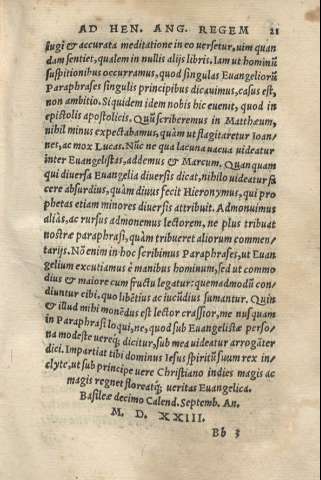 AD HEN. ANG. REGEM 21
iugi & accurata meditatione in eo versetur, uim quan
dam sentiet, qualem in nullis alijs libris. Iam ut hominũ
suspitionibus occurramus, quod singulas Euangeliorũ
Paraphrases singulis principibus dicauimus, casus est,
non ambitio. Siquidem idem nobis hic euenit, quod in
epistolis apostolicis. Quũ scriberemus in Matthæum,
nihil minus expectabamus, quàm ut flagitaretur Ioan-
nes, ac mox Lucas. Nũc ne qua lacuna uacua uideatur
inter Euangelistas, addemus & Marcum. Quanquam
qui diuersa Euangelia diuersis dicat, nihilo uideatur fa
cere absurdius, quàm diuus fecit Hieronymus, qui pro
phetas etiam minores diuersis attribuit. Admonuimus
aliàs, ac rursus admonemus lectorem, ne plus tribuat
nostræ paraphrasi, quàm tribueret aliorum commen-
tarijs. Nõ enim in hoc scribimus Paraphrases, ut Euan
gelium excutiamus è manibus hominum, sed ut commo
dius & maiore cum fructu legatur: quemadmodũ con-
diuntur cibi, quo libẽtius ac iucũdius sumantur. Quin
& illud mihi monẽdus est lector crassior, me nusquam
in Paraphrasi loqui, ne, quod sub Euangelistæ perso-
na modeste uereq; dicitur, sub mea uideatur arrogãter
dici. Impartiat tibi dominus Iesus spiritũ suum rex in-
clyte, ut sub principe uere Christiano indies magis ac
magis regnet floreatq; ueritas Euangelica.
Basileæ decimo Calend. Septemb. An.
M. D. XXIII.
Bb 3